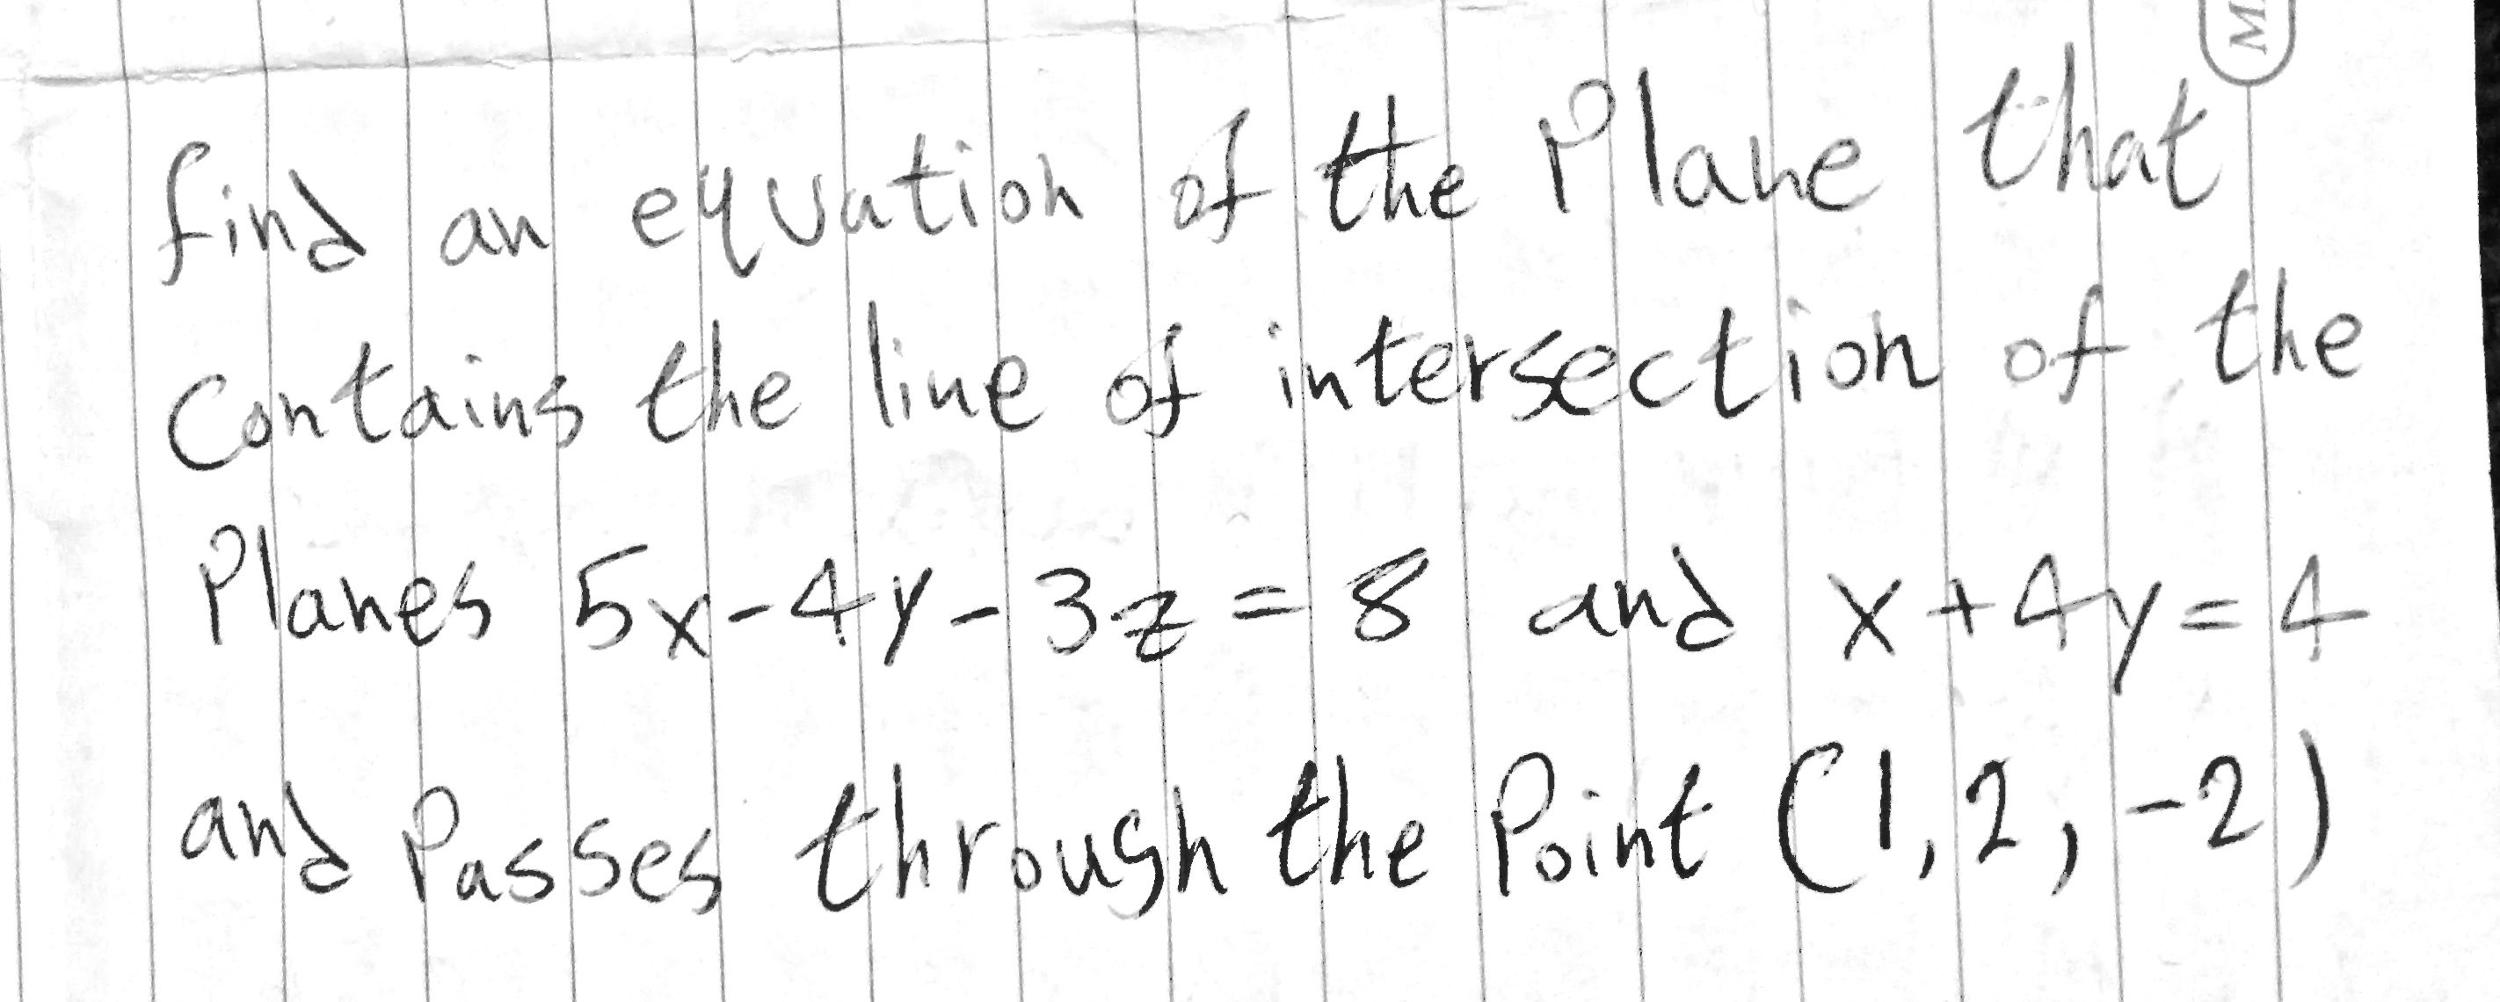 find an equation of the Plane that
Contains the line of intersection of the
Planes 5x-4y-3z=8 and x+4y=4
and Passes through the Point (1,2,-2)